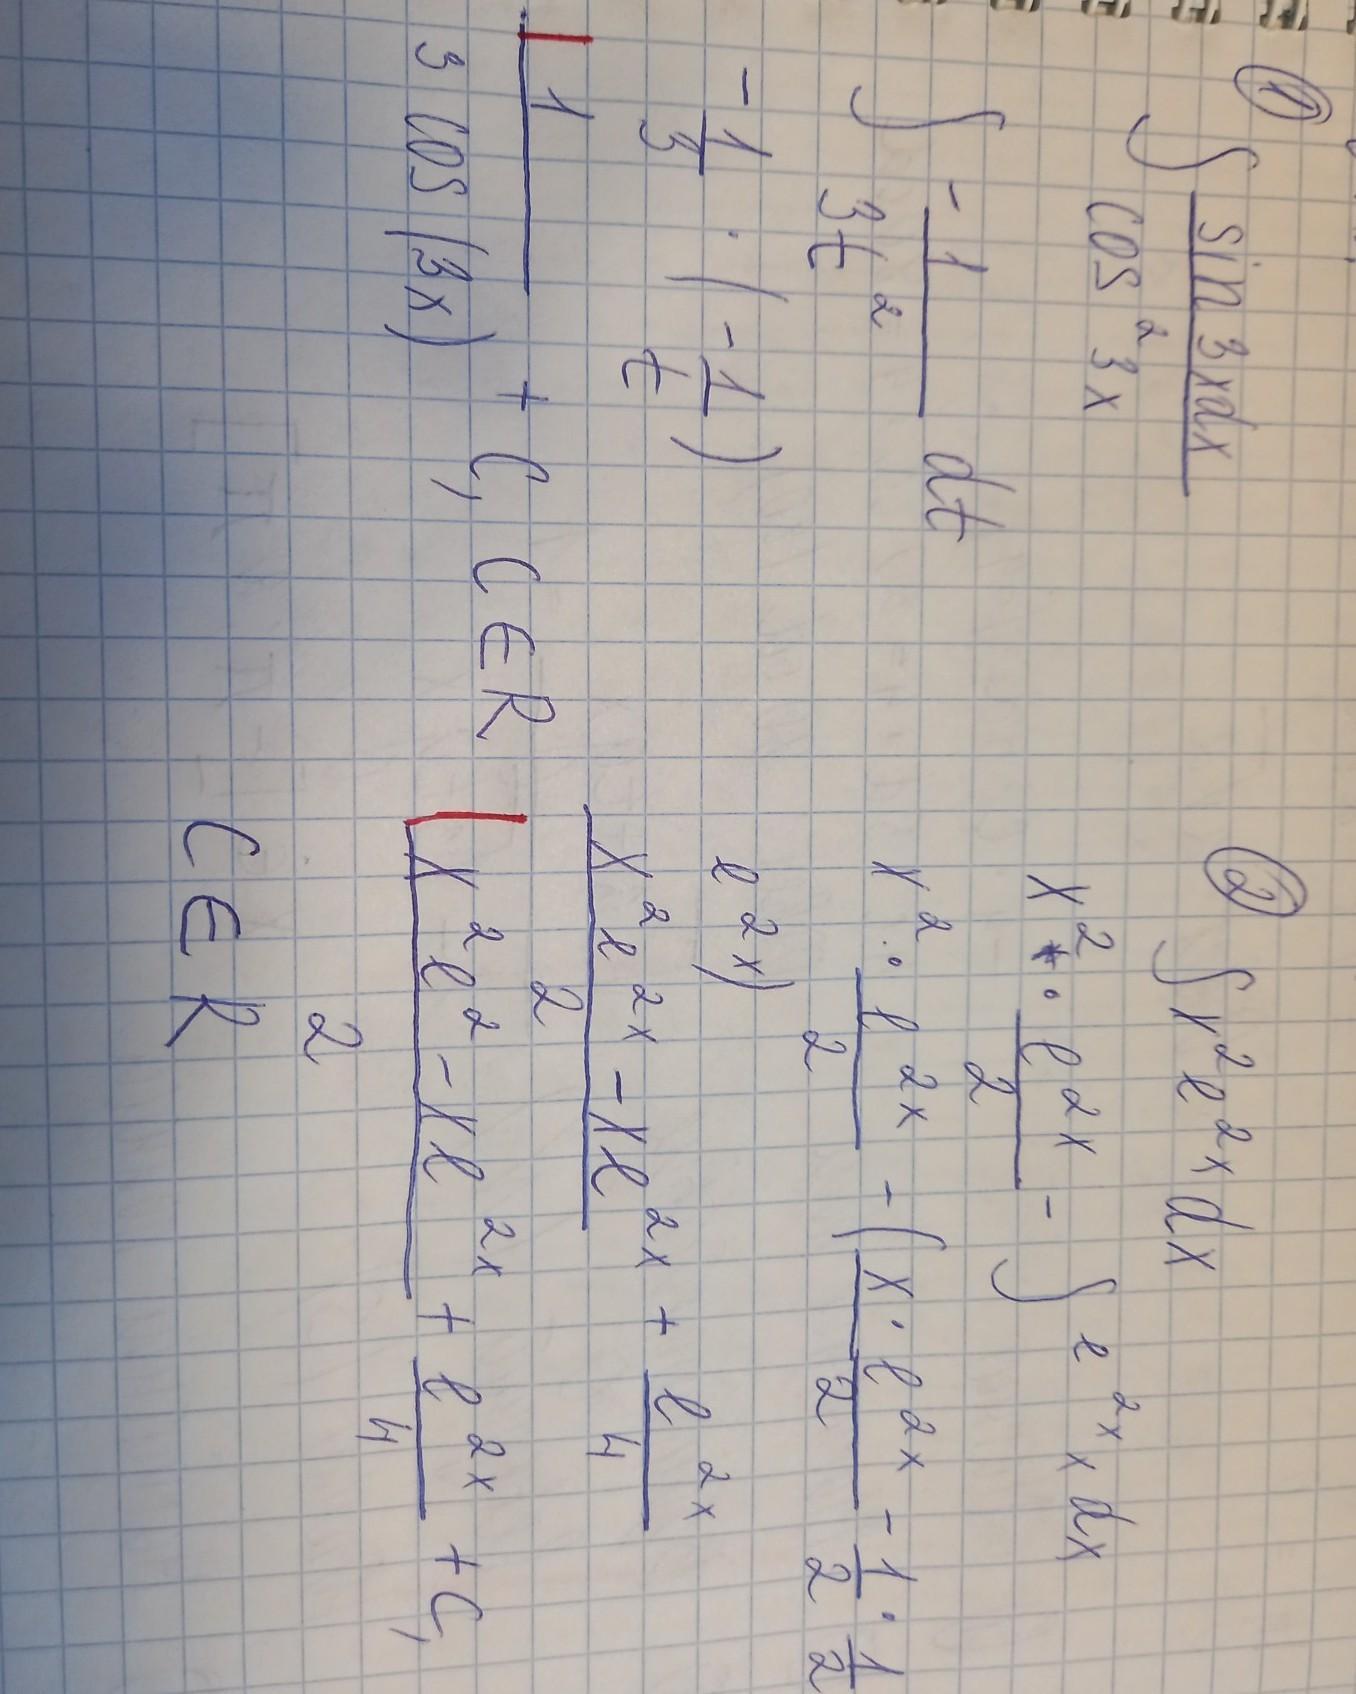 ①
∫ sin 3xdx / cos² 3x
∫ - 1 / 3t² dt
- 1/3 · ( - 1/t )
1 / 3 cos (3x) + C, C ∈ R
② ∫ x² e^2x dx
x² · e^2x / 2 - ∫ e^2x x dx
x² · e^2x / 2 - ( x · e^2x / 2 - 1/2 · 1/2
e^2x )
x² e^2x - x e^2x / 2 + e^2x / 4
x² e² - x e^2x / 2 + e^2x / 4 + C,
C ∈ R